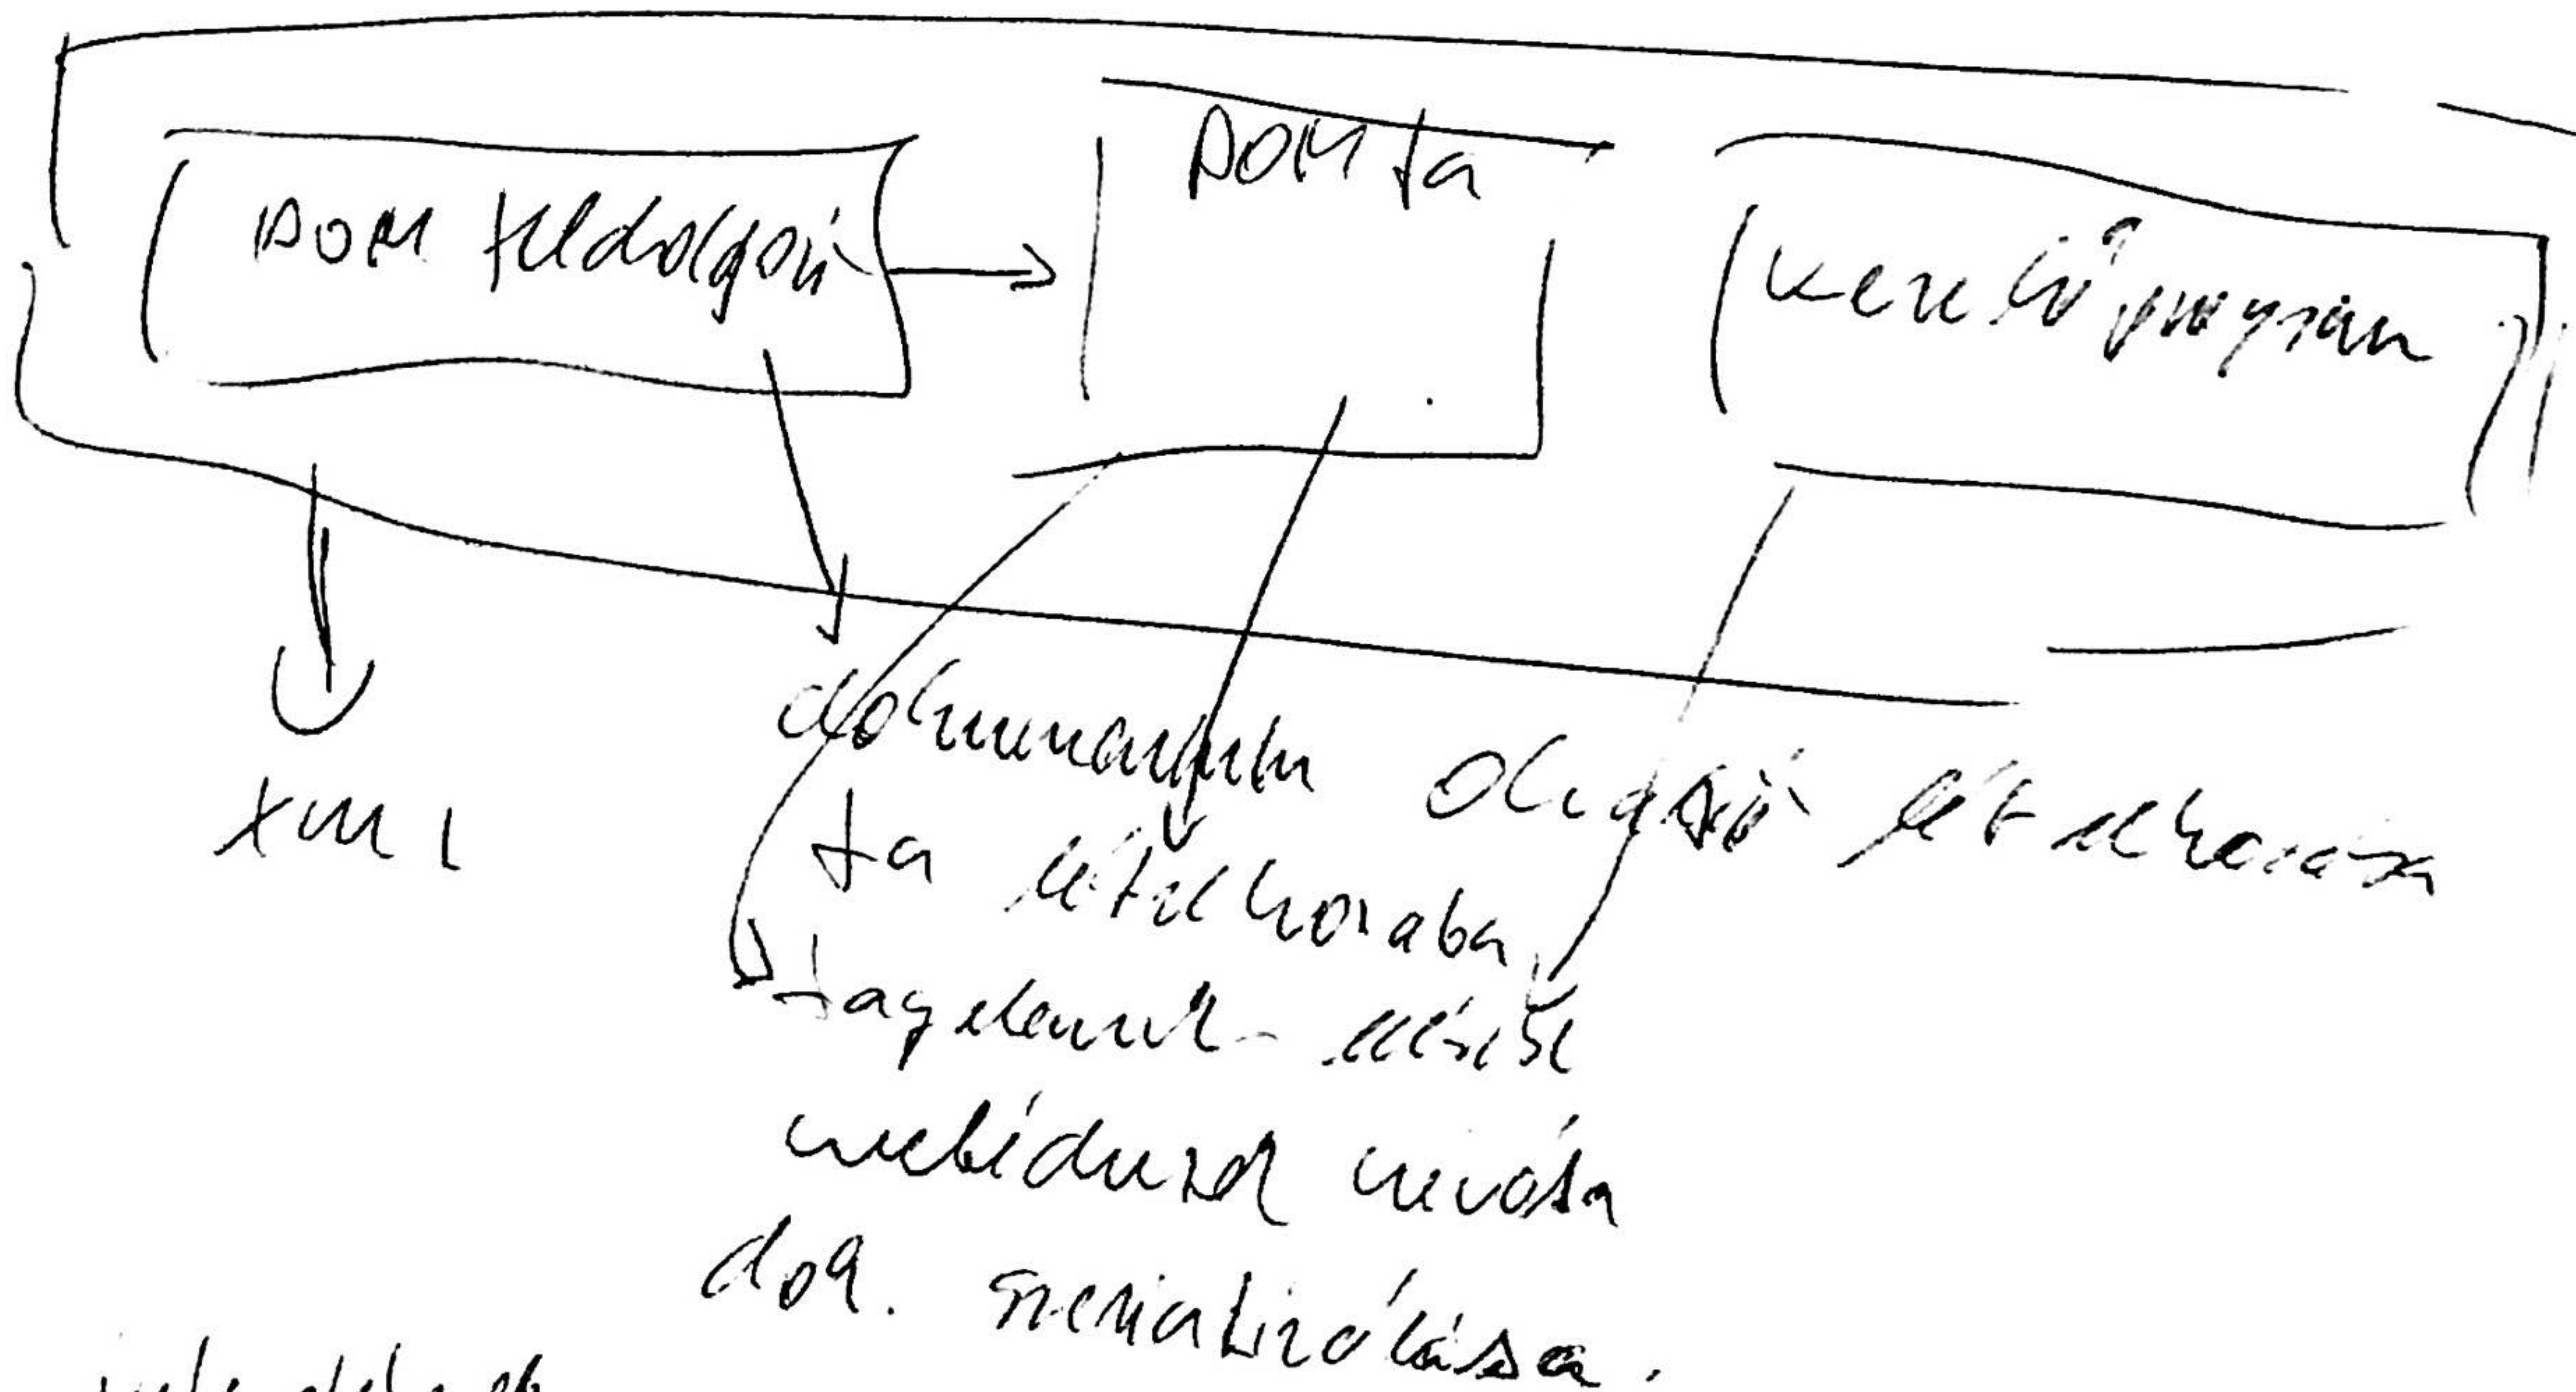 DOM feldolgozó
DOM fa
kezelőprogram
xml
dokumentum olvasó létrehozása
fa létrehozása
tagelemek elérése
metódusok hívása
dok. szerializálása.